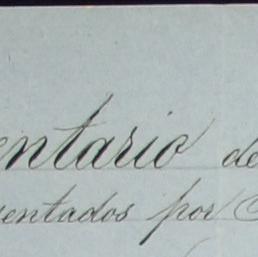 entario de
entados por